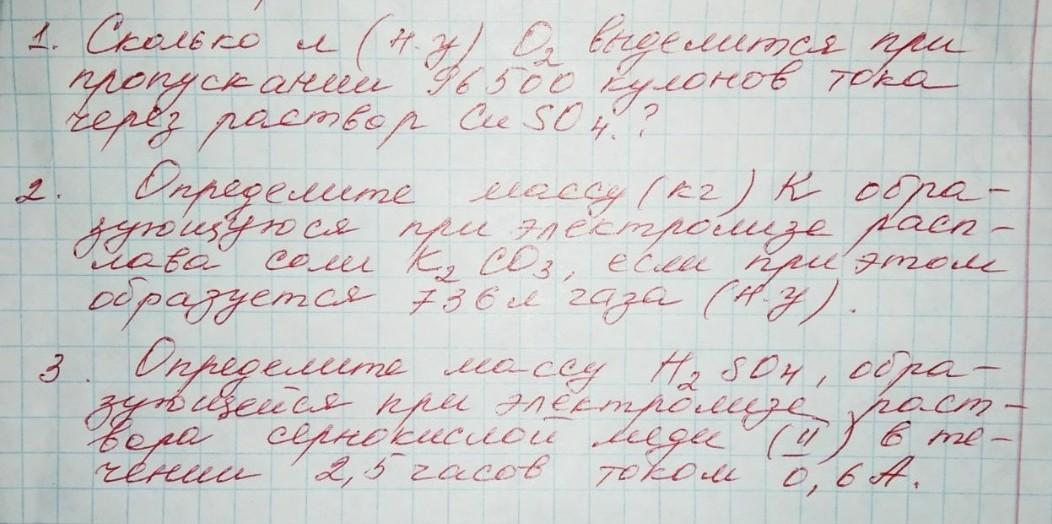 1. Сколько л (н.у) O2 выделится при
пропускании 96500 кулонов тока
через раствор CuSO4.?
2. Определите массу (кг) K обра-
зующуюся при электролизе расп-
лава соли K2CO3, если при этом
образуется 736 л газа (н.у).
3. Определите массу H2SO4, обра-
зующейся при электролизе раст-
вора сернокислой меди (II) в те-
чении 2,5 часов током 0,6 А.